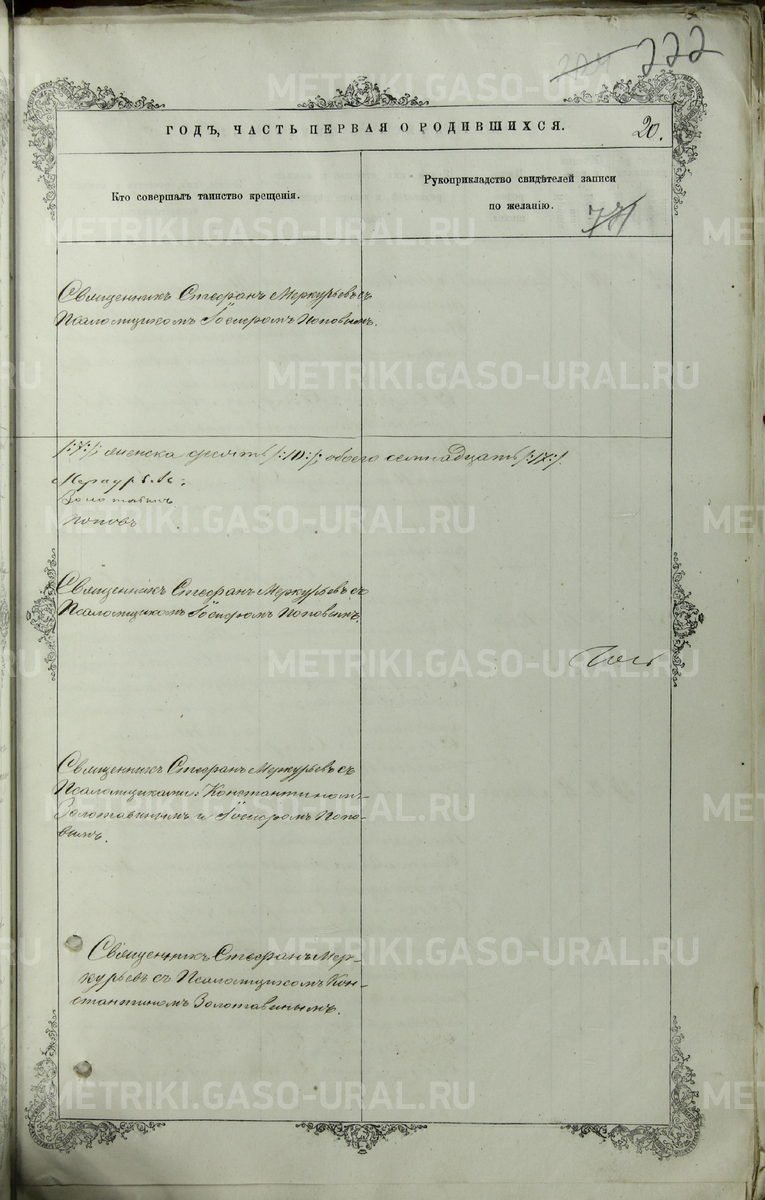 222
ГОДЪ, ЧАСТЬ ПЕРВАЯ О РОДИВШИХСЯ.
20.
Кто совершалъ таинство крещенія.
Рукоприкладство свидѣтелей записи
по желанію.
Священникъ Стефанъ Меркурьевъ съ
Псаломщикомъ Іосифомъ Поповымъ.
/:7:/ женска десять /:10:/ обоего семнадцать /:17:/.
Меркурьевъ
Золотавинъ
Поповъ
Священникъ Стефанъ Меркурьевъ съ
Псаломщикомъ Іосифомъ Поповымъ.
Священникъ Стефанъ Меркурьевъ съ
Псаломщиками: Константиномъ
Золотавинымъ и Іосифомъ Попо-
вымъ.
Священникъ Стефанъ Мер-
курьевъ съ Псаломщикомъ Кон-
стантиномъ Золотавинымъ.
METRIKI.GASO-URAL.RU